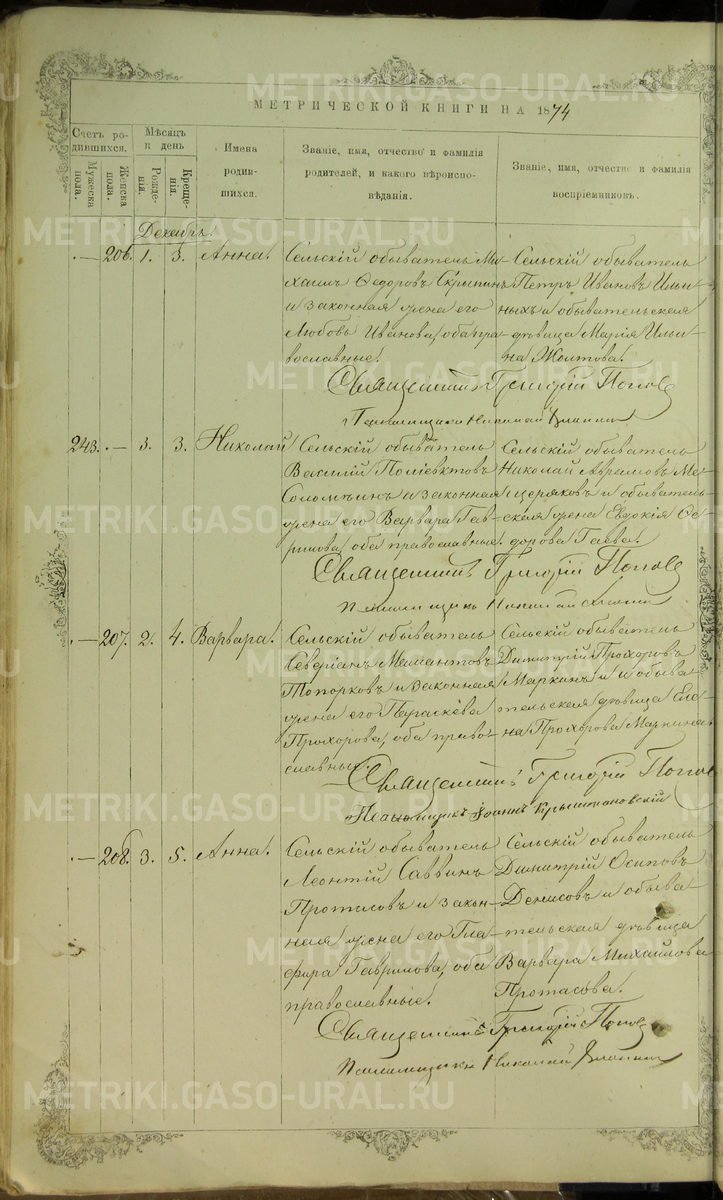 МЕТРИЧЕСКОЙ КНИГИ НА 1874
Счетъ родившихся.
Мужеска пола.
Женска пола.
Мѣсяцъ и день
Рожденія.
Крещенія.
Имена родившихся.
Званіе, имя, отчество и фамилія родителей, и какого вѣроисповѣданія.
Званіе, имя, отчество и фамилія воспріемниковъ.
Декабрь.
.— 206. 1. 3. Анна.
Сельскій обыватель Ми-
хаилъ Ѳедоровъ
и законная жена его
Любовь Иванова, оба пра-
вославные.
Сельскій обыватель
Петръ Ивановъ Ильи-
ныхъ и обывательская
дѣвица Марія Ильи-
на Желтова.
Священникъ Григорій Поповъ
Николай
243. .— 3. 3. Николай
Сельскій обыватель
Василій Поліевктовъ
Соломѣинъ и законная
жена его Варвара Гав-
рилова, оба православные.
Сельскій обыватель
Николай Ме-
щеряковъ и обыватель-
ская жена Евдокія Ѳе-
дорова Гаева.
Священникъ Григорій Поповъ
.— 207. 2. 4. Варвара.
Сельскій обыватель
Северіанъ Мамантовъ
Топорковъ и законная
жена его Параскева
Прохорова, оба право-
славные.
Сельскій обыватель
Димитрій Прохоровъ
Маркинъ и обыва-
тельская дѣвица Еле-
на Прохорова Маркина.
Священникъ Григорій Поповъ
Псаломщикъ Іоаннъ Крыжановскій
.— 208. 3. 5. Анна.
Сельскій обыватель
Леонтій Саввинъ
Протасовъ и закон-
ная жена его Гла-
фира Гаврилова, оба
православные.
Сельскій обыватель
Димитрій Осиповъ
Денисовъ и обыва-
тельская дѣвица
Варвара Михайлова
Протасова.
Священникъ Григорій Поповъ
Псаломщикъ Николай
METRIKI.GASO-URAL.RU